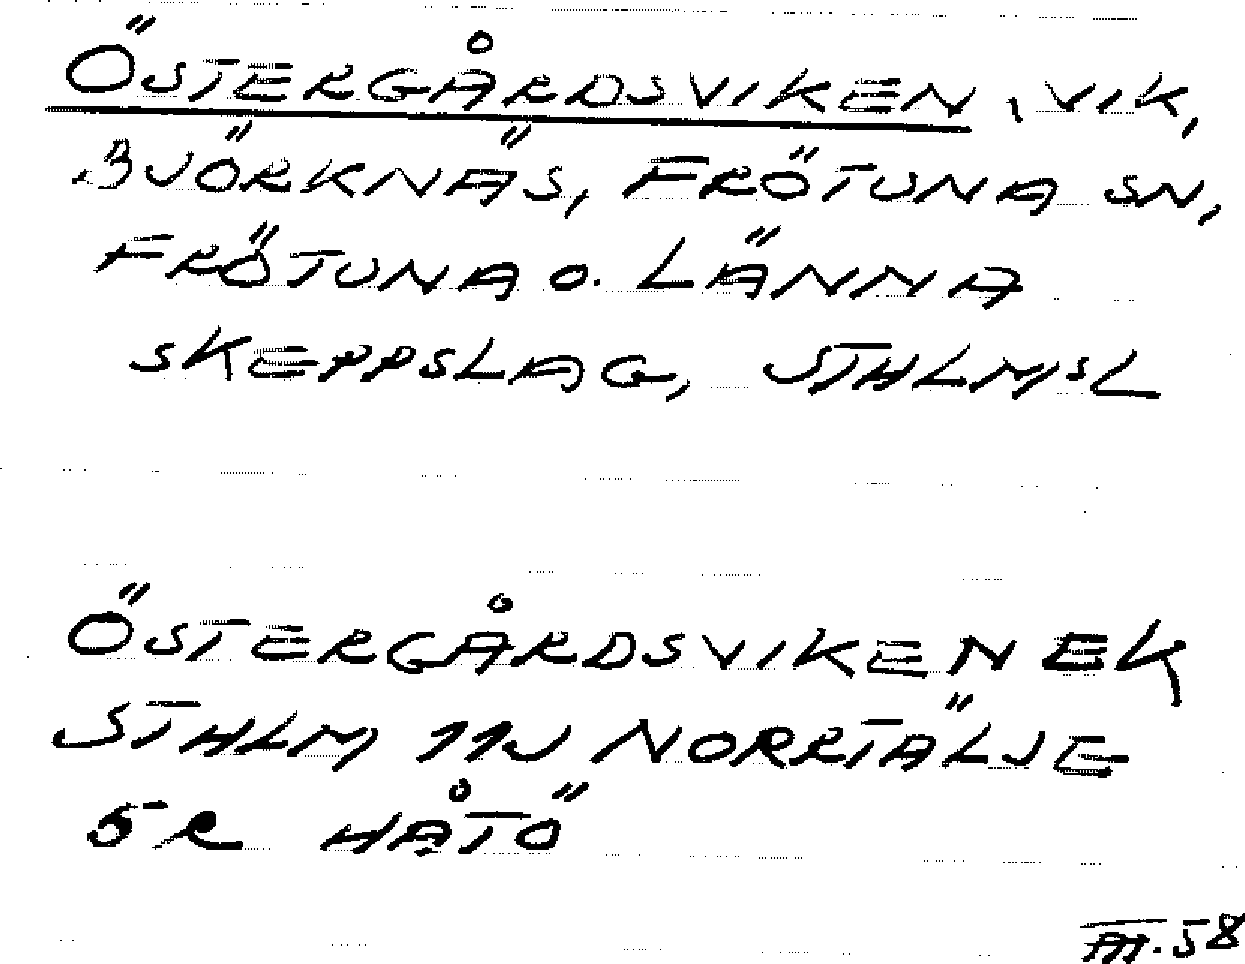 ÖSTERGÅRDSVIKEN, VIK,
BJÖRKNÄS, FRÖTUNA SN,
FRÖTUNA O. LÄNNA
SKEPPSLAG, STHLMSL
ÖSTERGÅRDSVIKEN EK
STHLM 11J NORRTÄLJE
5 R HÅTÖ
58